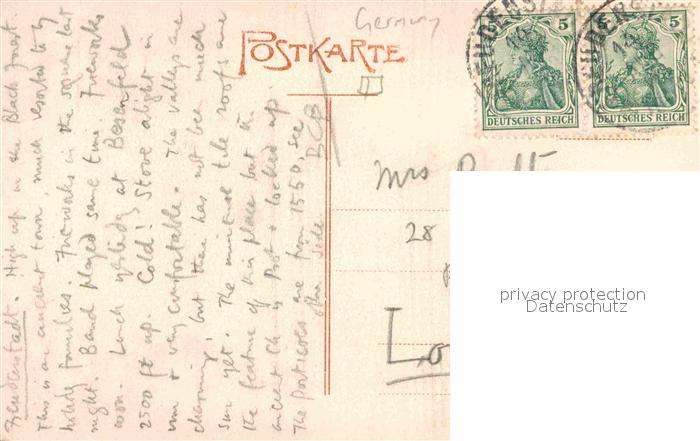 Freudenstadt. High up in the Black Forest.
This is an ancient town, much resorted to by
holiday families. Fireworks in the square last
night. Band played same time. Fireworks
won. Lunch yesterday at Besenfeld
2500 ft up. Cold! Stove alight in
inn & very comfortable. The valleys are
charming, but there has not been much
sun yet. The tile roofs are
the feature of this place but the
ancient Ch is Prot & locked up.
The Porticoes are from 1550, see
other side
BCB
Germany
POSTKARTE
5
DEUTSCHES REICH
5
DEUTSCHES REICH
Mrs
28
Lo
privacy protection
Datenschutz